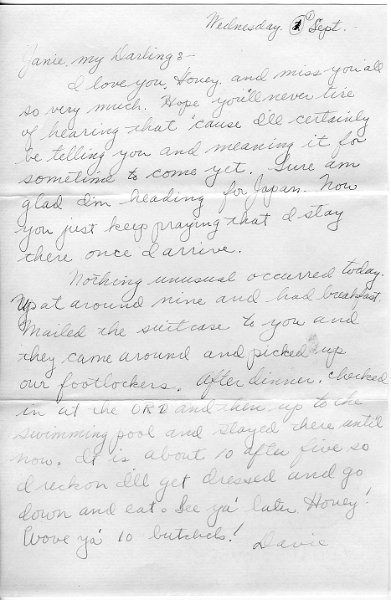 Wednesday Sept. -
Janie, my Darling: -
I love you, Honey, and miss you all
so very much. Hope you'll never tire
of hearing that 'cause I'll certainly
be telling you and meaning it for
sometime to come yet. Sure am
glad I'm heading for Japan. Now
you just keep praying that I stay
there once I arrive.
Nothing unusual occurred today.
Up at around nine and had breakfast.
Mailed the suitcase to you and
they came around and picked up
our footlockers. After dinner, checked
in at the and then up to the
swimming pool and stayed there until
now. It is about 10 after five so
I reckon I'll get dressed and go
down and eat. See ya' later, Honey!
Wove ya' 10 butchels!
Davie